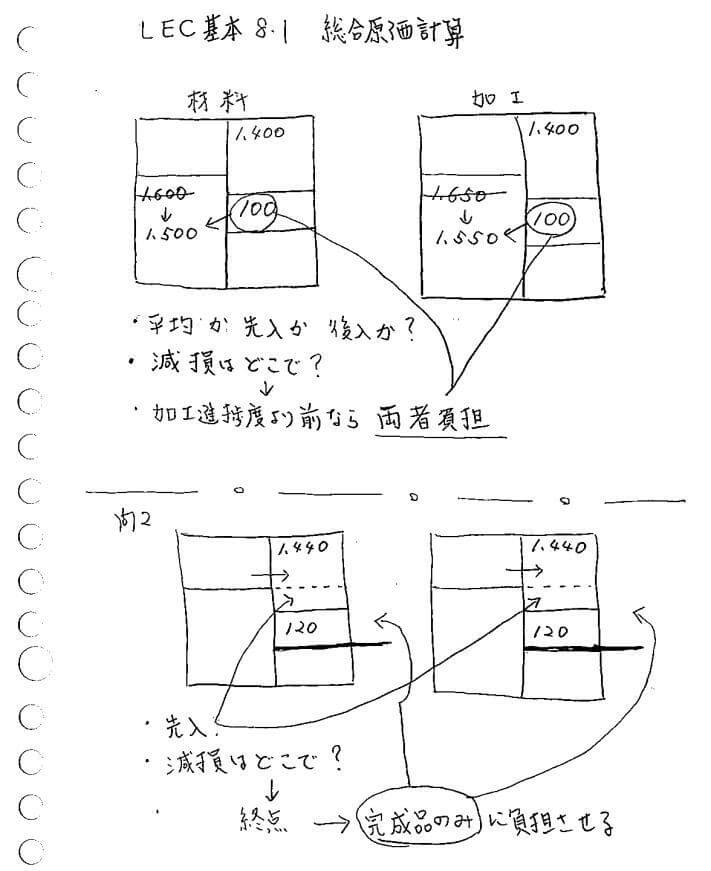 LEC基本 8.1 総合原価計算
材料 加工
1,400 1,400
1,600 100 1,650 100
↓ ↓
1,500 1,550
・平均か 先入か 後入か?
・減損はどこで?
↓
・加工進捗度より前なら 両者負担
問2
1,440 1,440
120 120
・先入
・減損はどこで?
↓
・ 終点 → 完成品のみに負担させる